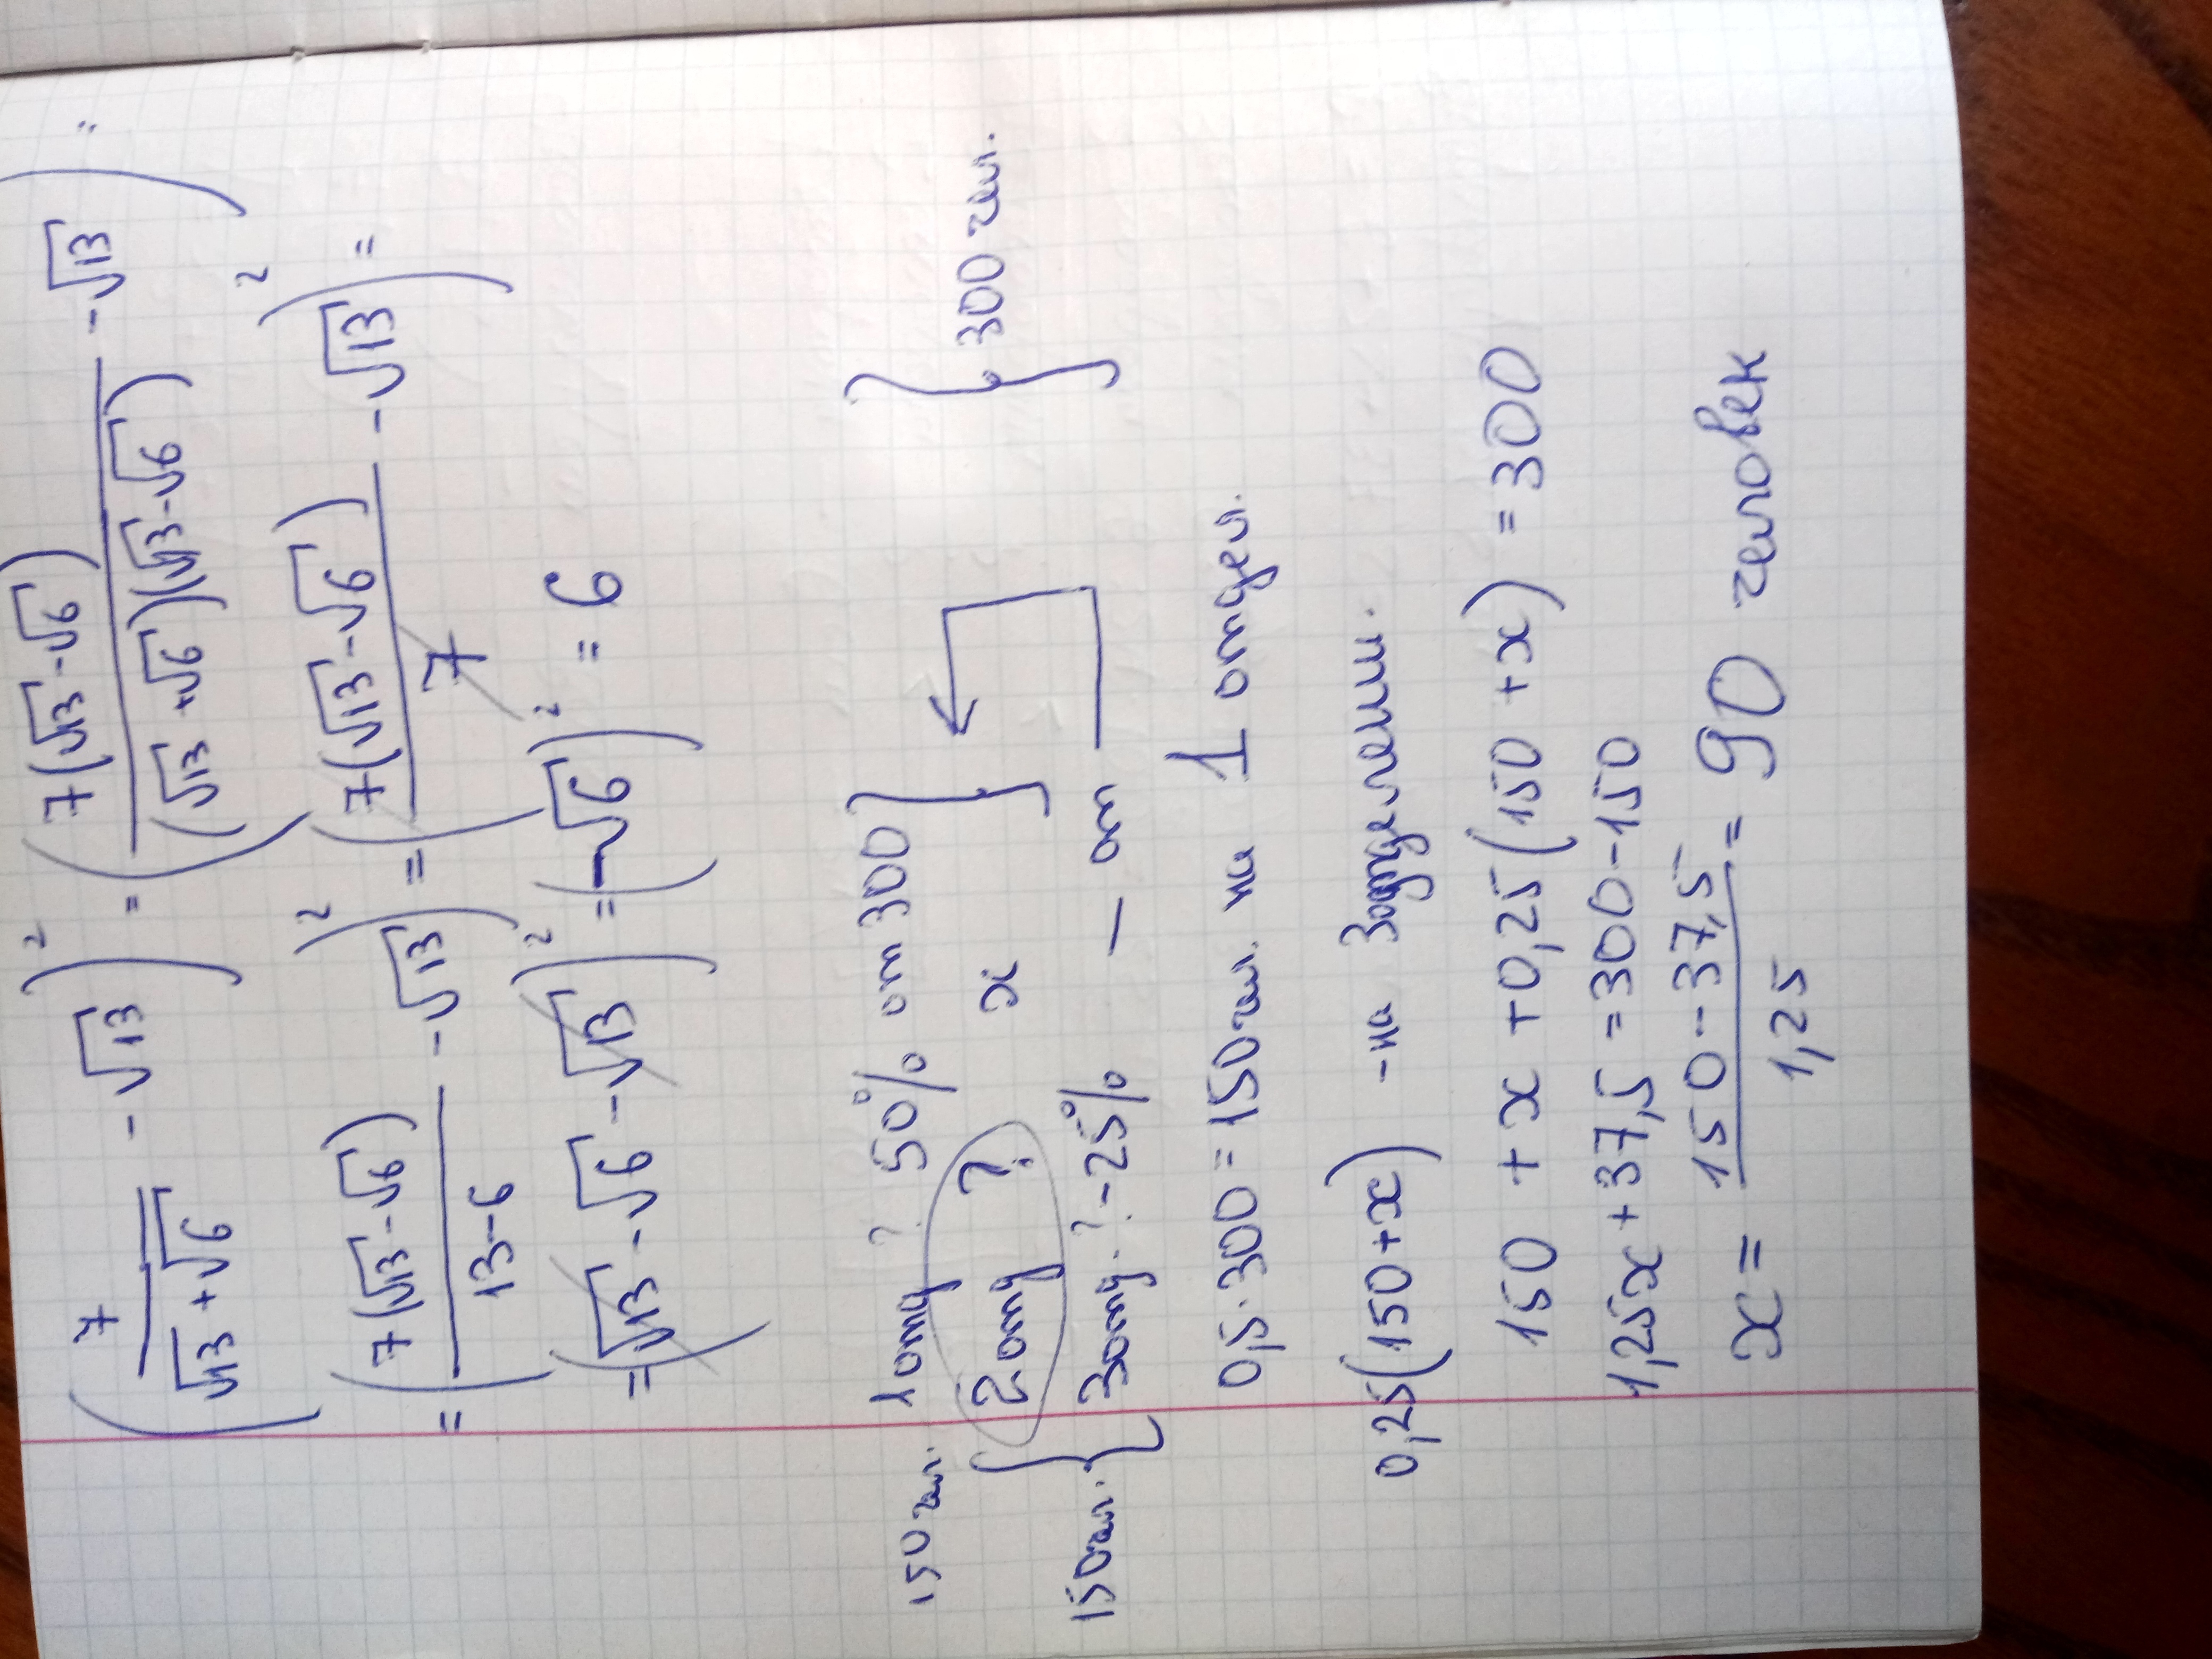 (7/(√13 + √6) - √13)² = (7(√13 - √6)/((√13 + √6)(√13 - √6)) - √13)² =
= (7(√13 - √6)/(13 - 6) - √13)² = (7(√13 - √6)/7 - √13)² =
= (√13 - √6 - √13)² = (-√6)² = 6
150 чел. 1 отд ? 50% от 300
2 отд ? x
150 чел. 3 отд. ? - 25% - от
300 чел.
0,5 · 300 = 150 чел. на 1 отдел.
0,25(150 + x) - на 3 отделении.
150 + x + 0,25(150 + x) = 300
1,25x + 37,5 = 300 - 150
x = (150 - 37,5)/1,25 = 90 человек